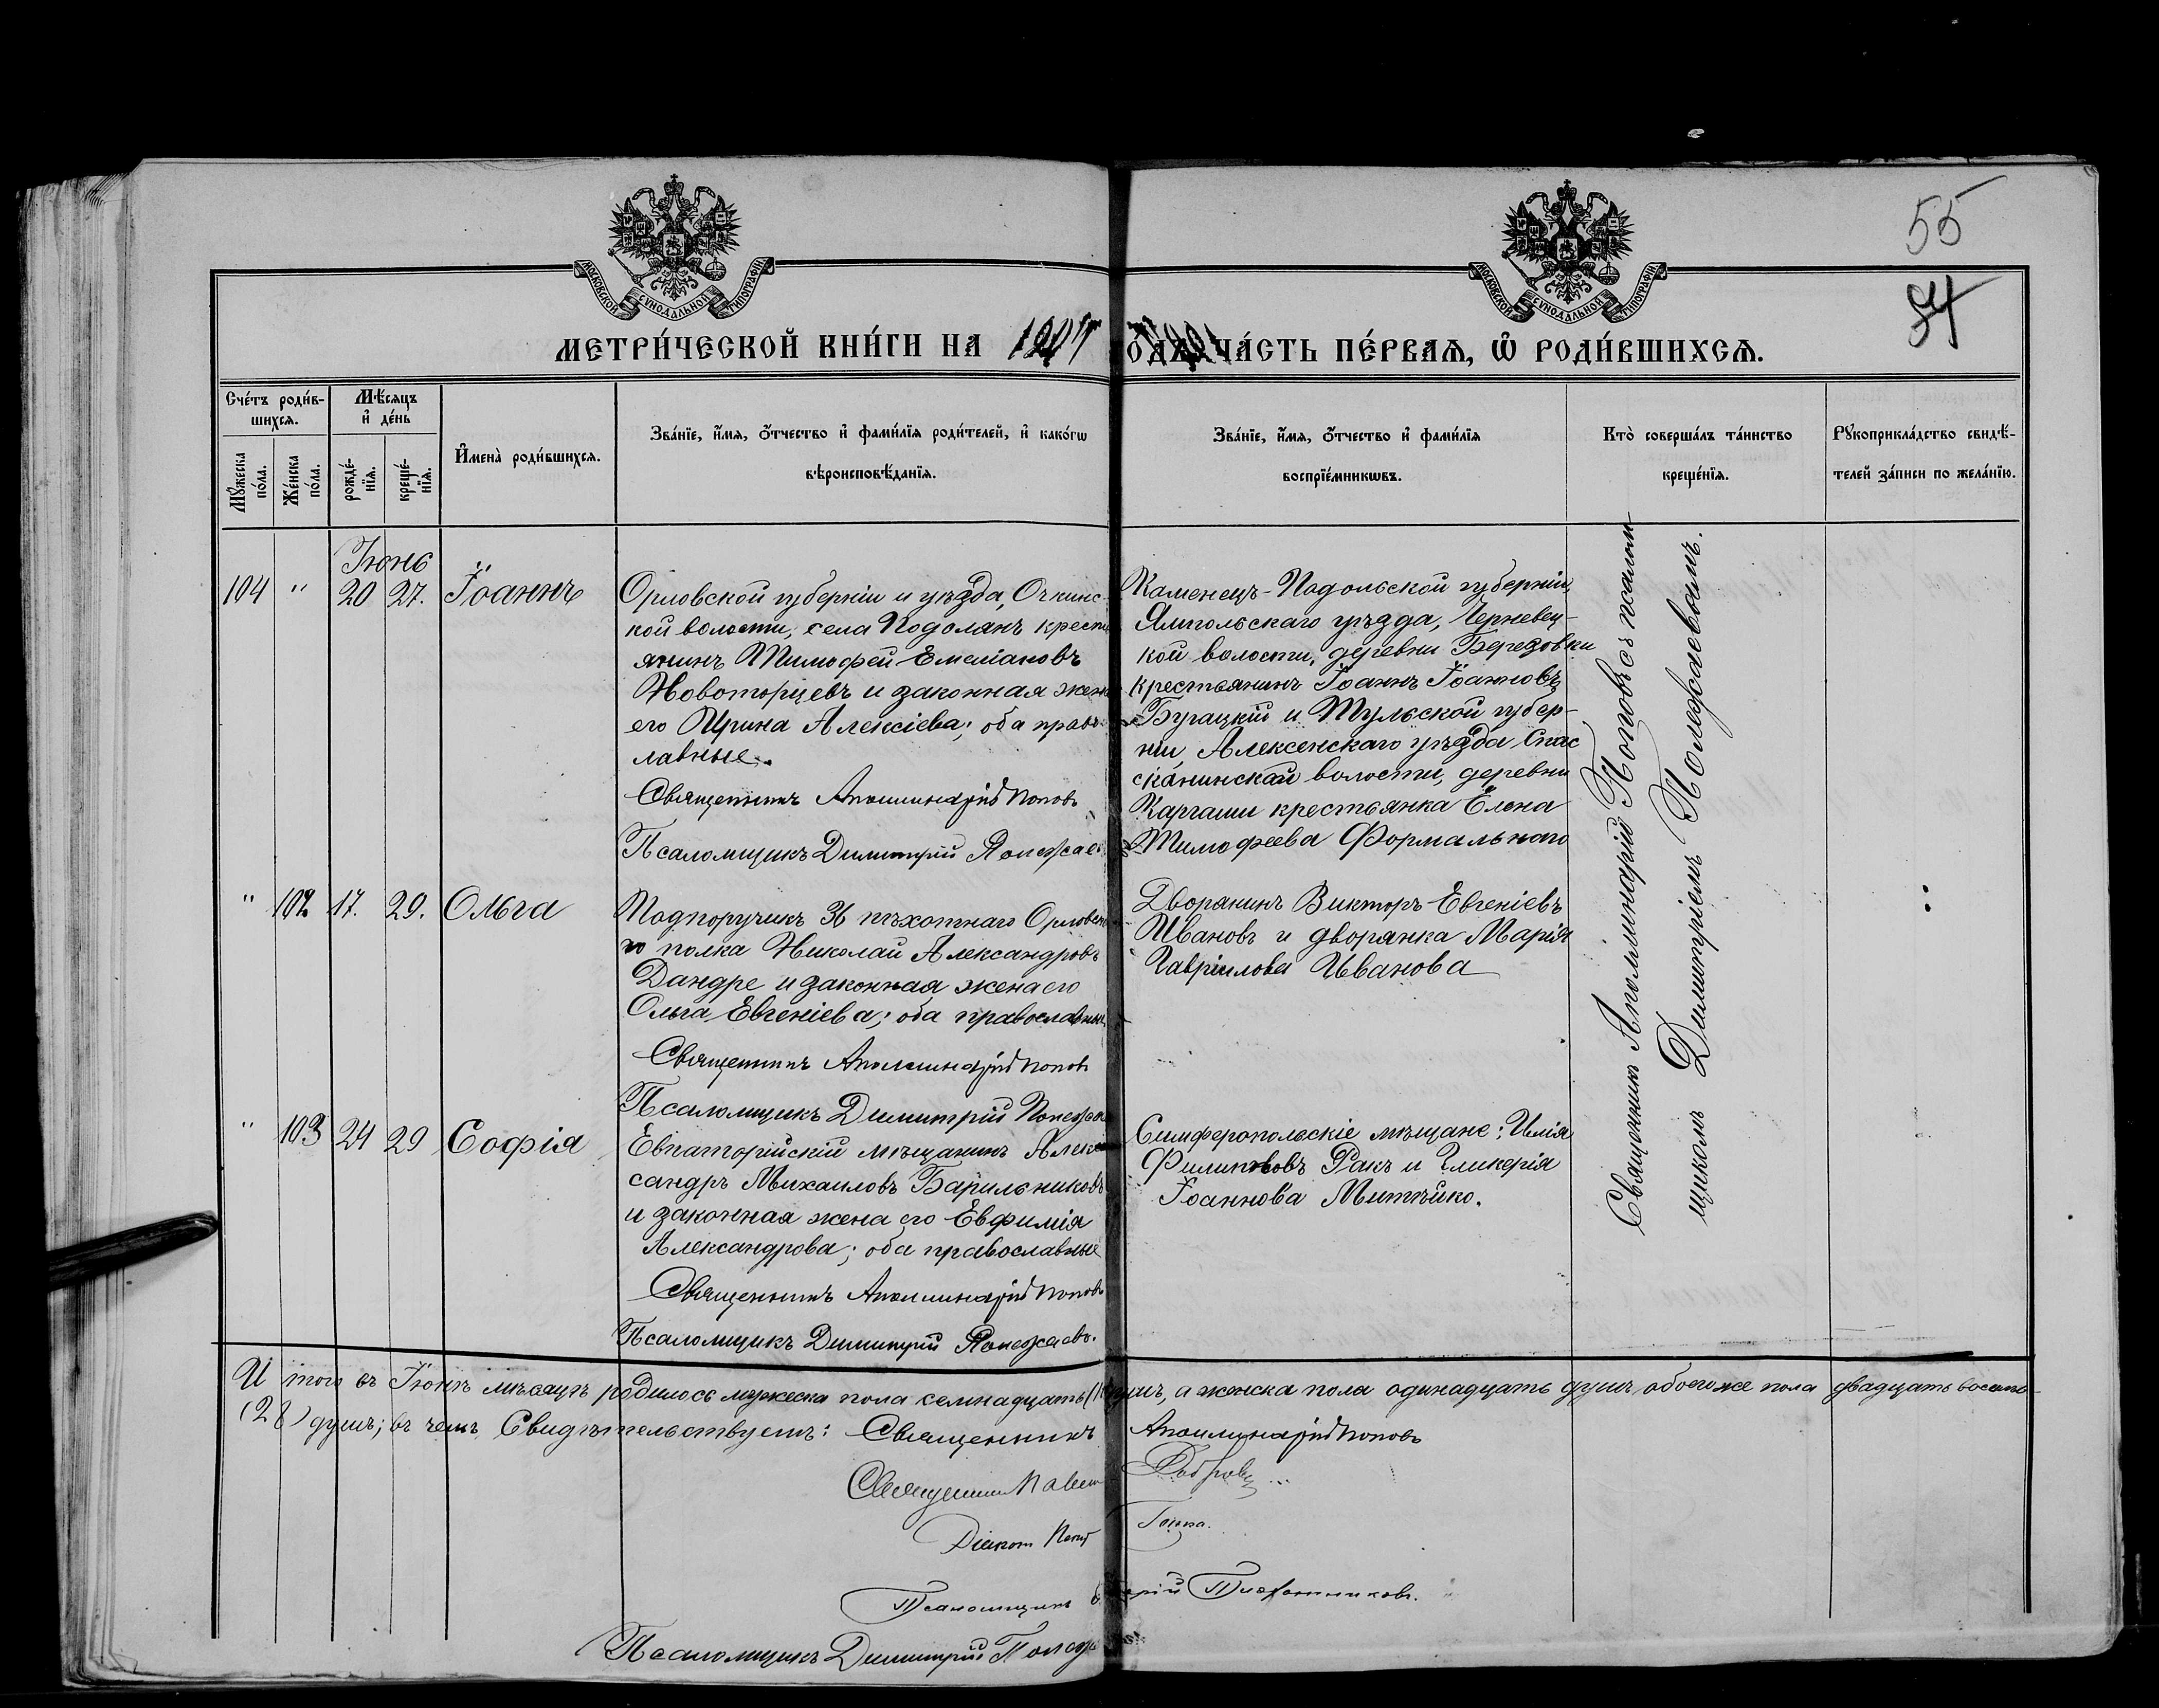 МОСКОВСКОЙ СУНОДАЛЬНОЙ ТИПОГРАФІИ
МОСКОВСКОЙ СУНОДАЛЬНОЙ ТИПОГРАФІИ
55
54
МЕТРИ́ЧЕСКОЙ КНИ́ГИ НА 1907
ЧА́СТЬ ПЕ́РВАЯ, Ѡ РОДИ́ВШИХСЯ.
Сче́тъ роди́в-
шихся.
Мꙋ́жеска по́ла.
Же́нска по́ла.
Мѣ́сяцъ и҆ де́нь
рожде́-
нїя.
креще́-
нїя.
И҆мена̀ роди́вшихся.
Зва́нїе, и҆́мя, ѻ҆́тчество и҆ фами́лїя роди́телей, и҆ како́гѡ
вѣроисповѣ́данїя.
Зва́нїе, и҆́мя, ѻ҆́тчество и҆ фами́лїя
воспрїе́мникѡвъ.
Кто̀ соверша́лъ та́инство
креще́нїя.
Рꙋкоприкла́дство свидѣ́-
телей за́писи по жела́нїю.
Іюнь
104 " 20 27. Іоаннъ
Орловской губерніи и уѣзда,
кой волости, села Подолянъ крестьянинъ Тимофей Емеліановъ
Новоторцевъ и законная жена
его Ирина Алексіева; оба право-
лавные.
Священникъ Аполлинарій Поповъ
Псаломщикъ Димитрій Полежаевъ
Каменецъ-Подольской губерніи,
Ямпольскаго уѣзда, Черневец-
кой волости, деревни Березовки
крестьянинъ Іоаннъ Іоанновъ
Бугацкій и Тульской губер-
ніи, Алексенскаго уѣзда Спас
сканинской волости, деревни
Каргаши крестьянка Елена
Тимофеева Формальнаго
" 102 17. 29. Ольга
Подпоручикъ 36 пѣхотнаго Орловска
го полка Николай Александровъ
Дандре и законная жена его
Ольга Евгеніева; оба православные
Священникъ Аполлинарій Поповъ
Псаломщикъ Димитрій Полежаев
Дворянинъ Викторъ Евгеніевъ
Ивановъ и дворянка Марія
Гавріилова Иванова
" 103 24 29 Софія
Евпаторійскій мѣщанинъ Алек
сандръ Михаиловъ Барильниковъ
и законная жена его Евфимія
Александрова; оба православные
Священникъ Аполлинарій Поповъ
Псаломщикъ Димитрій Полежаевъ.
Симферопольскіе мѣщане: Илія
Филипповъ Ракъ и Гликерія
Іоаннова Митчико.
Священникъ Аполлинарій Поповъ съ псалом
щикомъ Димитріемъ Полежаевымъ.
И того въ Іюнѣ мѣсяцѣ родилось мужеска пола семнадцать душъ, а женска пола одинадцать душъ, обоего же пола двадцать восемь
(28) душъ; въ чемъ Свидѣтельствуемъ: Священникъ Аполлинарій Поповъ
Священникъ
Діаконъ
Псаломщикъ Плотниковъ.
Псаломщикъ Димитрій Полеж